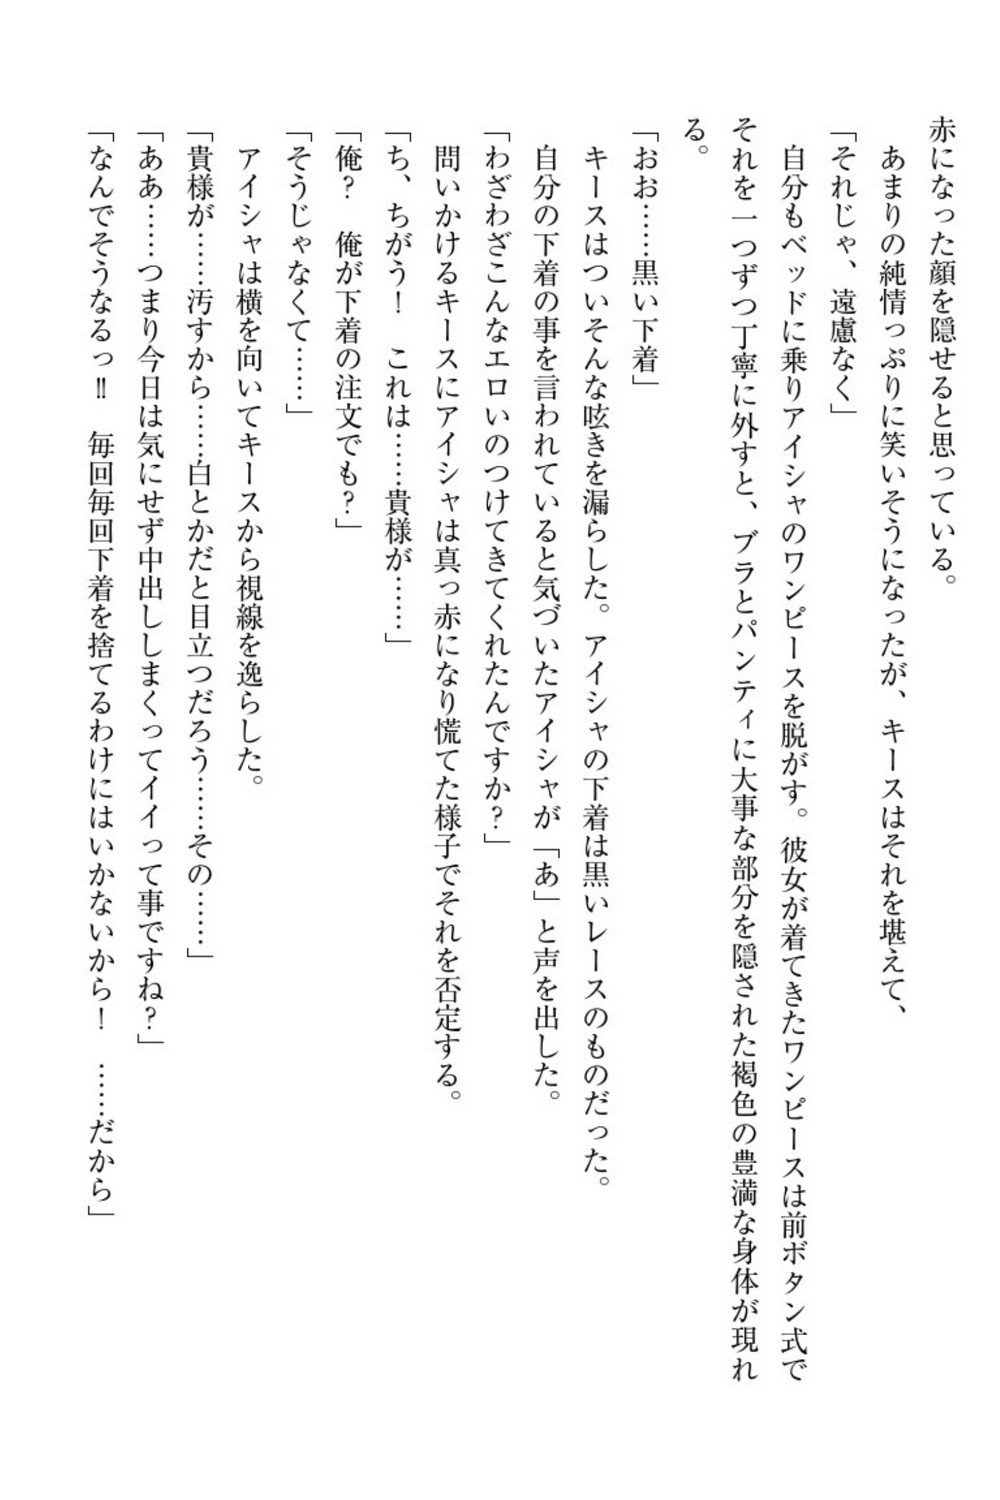 赤になった顔を隠せると思っている。
　あまりの純情っぷりに笑いそうになったが、キースはそれを堪えて、
「それじゃ、遠慮なく」
　自分もベッドに乗りアイシャのワンピースを脱がす。彼女が着てきたワンピースは前ボタン式で
それを一つずつ丁寧に外すと、ブラとパンティに大事な部分を隠された褐色の豊満な身体が現れ
る。
「おお……黒い下着」
　キースはついそんな呟きを漏らした。アイシャの下着は黒いレースのものだった。
　自分の下着の事を言われていると気づいたアイシャが「あ」と声を出した。
「わざわざこんなエロいのつけてきてくれたんですか？」
　問いかけるキースにアイシャは真っ赤になり慌てた様子でそれを否定する。
「ち、ちがう！　これは……貴様が……」
「俺？　俺が下着の注文でも？」
「そうじゃなくて……」
　アイシャは横を向いてキースから視線を逸らした。
「貴様が……汚すから……白とかだと目立つだろう……その……」
「ああ……つまり今日は気にせず中出ししまくってイイって事ですね？」
「なんでそうなるっ‼　毎回毎回下着を捨てるわけにはいかないから！　……だから」